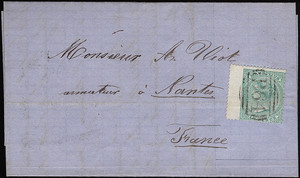 Monsieur A. Viot
armateur à Nantes
France